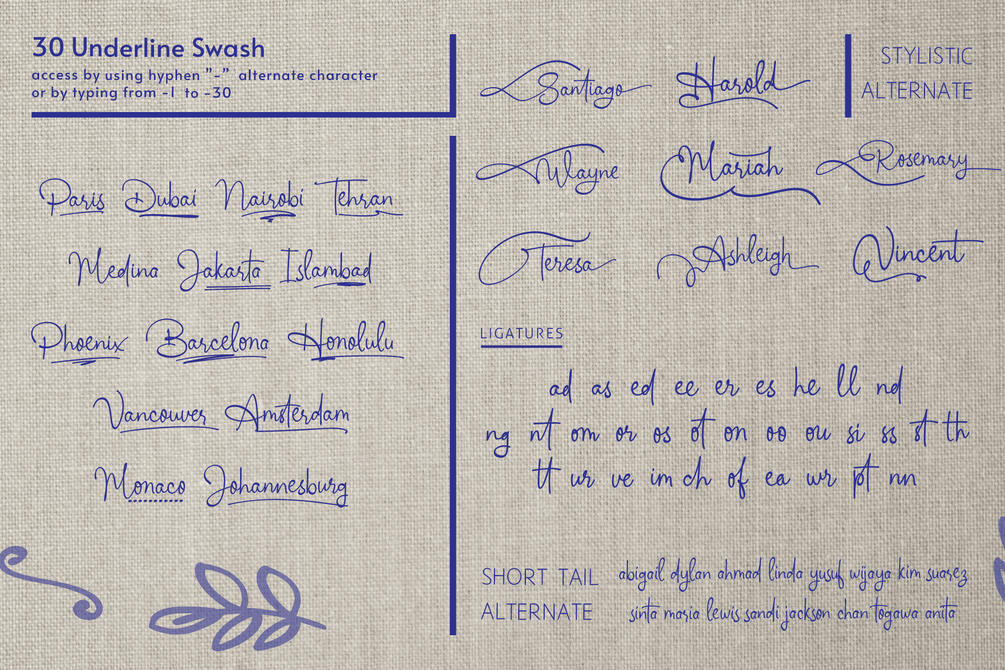 30 Underline Swash
access by using hyphen "-" alternate character
or by typing from -1 to -30
Paris Dubai Nairobi Tehran
Medina Jakarta Islambad
Phoenix Barcelona Honolulu
Vancouver Amsterdam
Monaco Johannesburg
Santiago Harold
STYLISTIC
ALTERNATE
Wayne Mariah Rosemary
Teresa Ashleigh Vincent
LIGATURES
ad as ed ee er es he ll nd
ng nt om or os ot on oo ou si ss st th
tt ur ve im ch of ea wr pt nn
SHORT TAIL
ALTERNATE
abigail dylan ahmad linda yusuf wijaya kim suarez
sinta maria lewis sandi jackson chan togawa anita